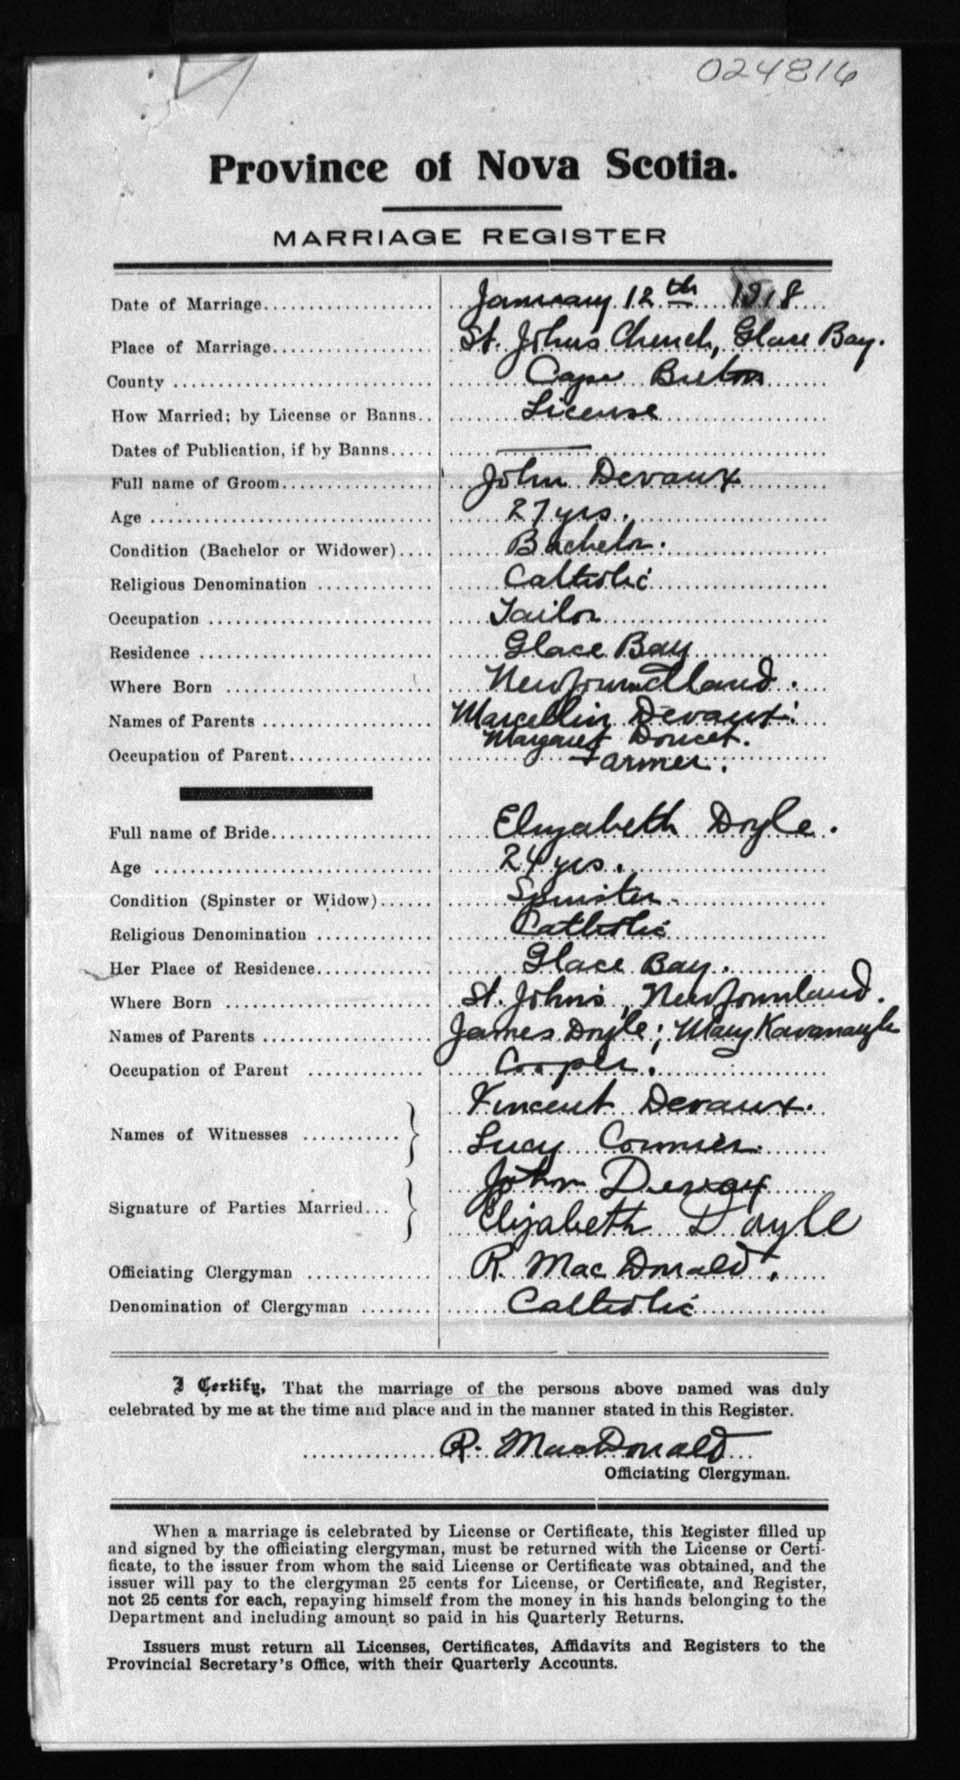 024816
Province of Nova Scotia.
MARRIAGE REGISTER
Date of Marriage January 12th 1918
Place of Marriage St. Johns Church, Glace Bay.
County Cape Breton
How Married; by License or Banns License
Dates of Publication, if by Banns
Full name of Groom John Devaux
Age 27 yrs.
Condition (Bachelor or Widower) Bachelor.
Religious Denomination Catholic
Occupation Tailor
Residence Glace Bay
Where Born Newfoundland.
Names of Parents Marcellin Devaux:
Margaret Doucet.
Occupation of Parent Farmer.
Full name of Bride Elizabeth Doyle.
Age 24 yrs.
Condition (Spinster or Widow) Spinster
Religious Denomination Catholic
Her Place of Residence Glace Bay.
Where Born St. John's, Newfounland.
Names of Parents James Doyle; Mary Kavanaugh
Occupation of Parent Cooper.
Names of Witnesses } Vincent Devaux.
Lucy Cormier.
Signature of Parties Married } John Devox
Elizabeth Doyle
Officiating Clergyman R. MacDonald.
Denomination of Clergyman Catholic
I Certify, That the marriage of the persons above named was duly
celebrated by me at the time and place and in the manner stated in this Register.
R. MacDonald
Officiating Clergyman.
When a marriage is celebrated by License or Certificate, this Register filled up
and signed by the officiating clergyman, must be returned with the License or Certi-
ficate, to the issuer from whom the said License or Certificate was obtained, and the
issuer will pay to the clergyman 25 cents for License, or Certificate, and Register,
not 25 cents for each, repaying himself from the money in his hands belonging to the
Department and including amount so paid in his Quarterly Returns.
Issuers must return all Licenses, Certificates, Affidavits and Registers to the
Provincial Secretary's Office, with their Quarterly Accounts.